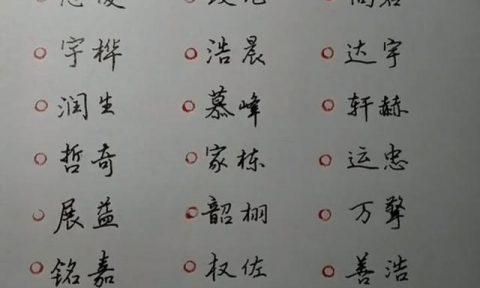 宇桦 浩晨 达宇
润生 慕峰 轩赫
哲奇 家栋 运忠
展益 韶栩 万擎
铭嘉 权佐 善浩